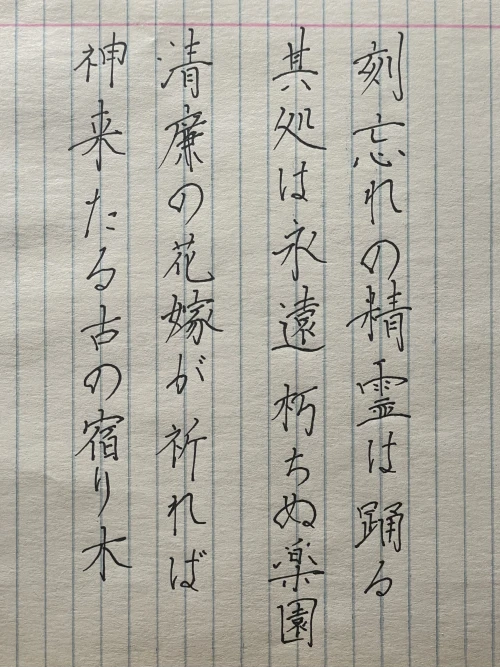 刻忘れの精霊は踊る
其処は永遠朽ちぬ楽園
清廉の花嫁が祈れば
神来たる古の宿り木